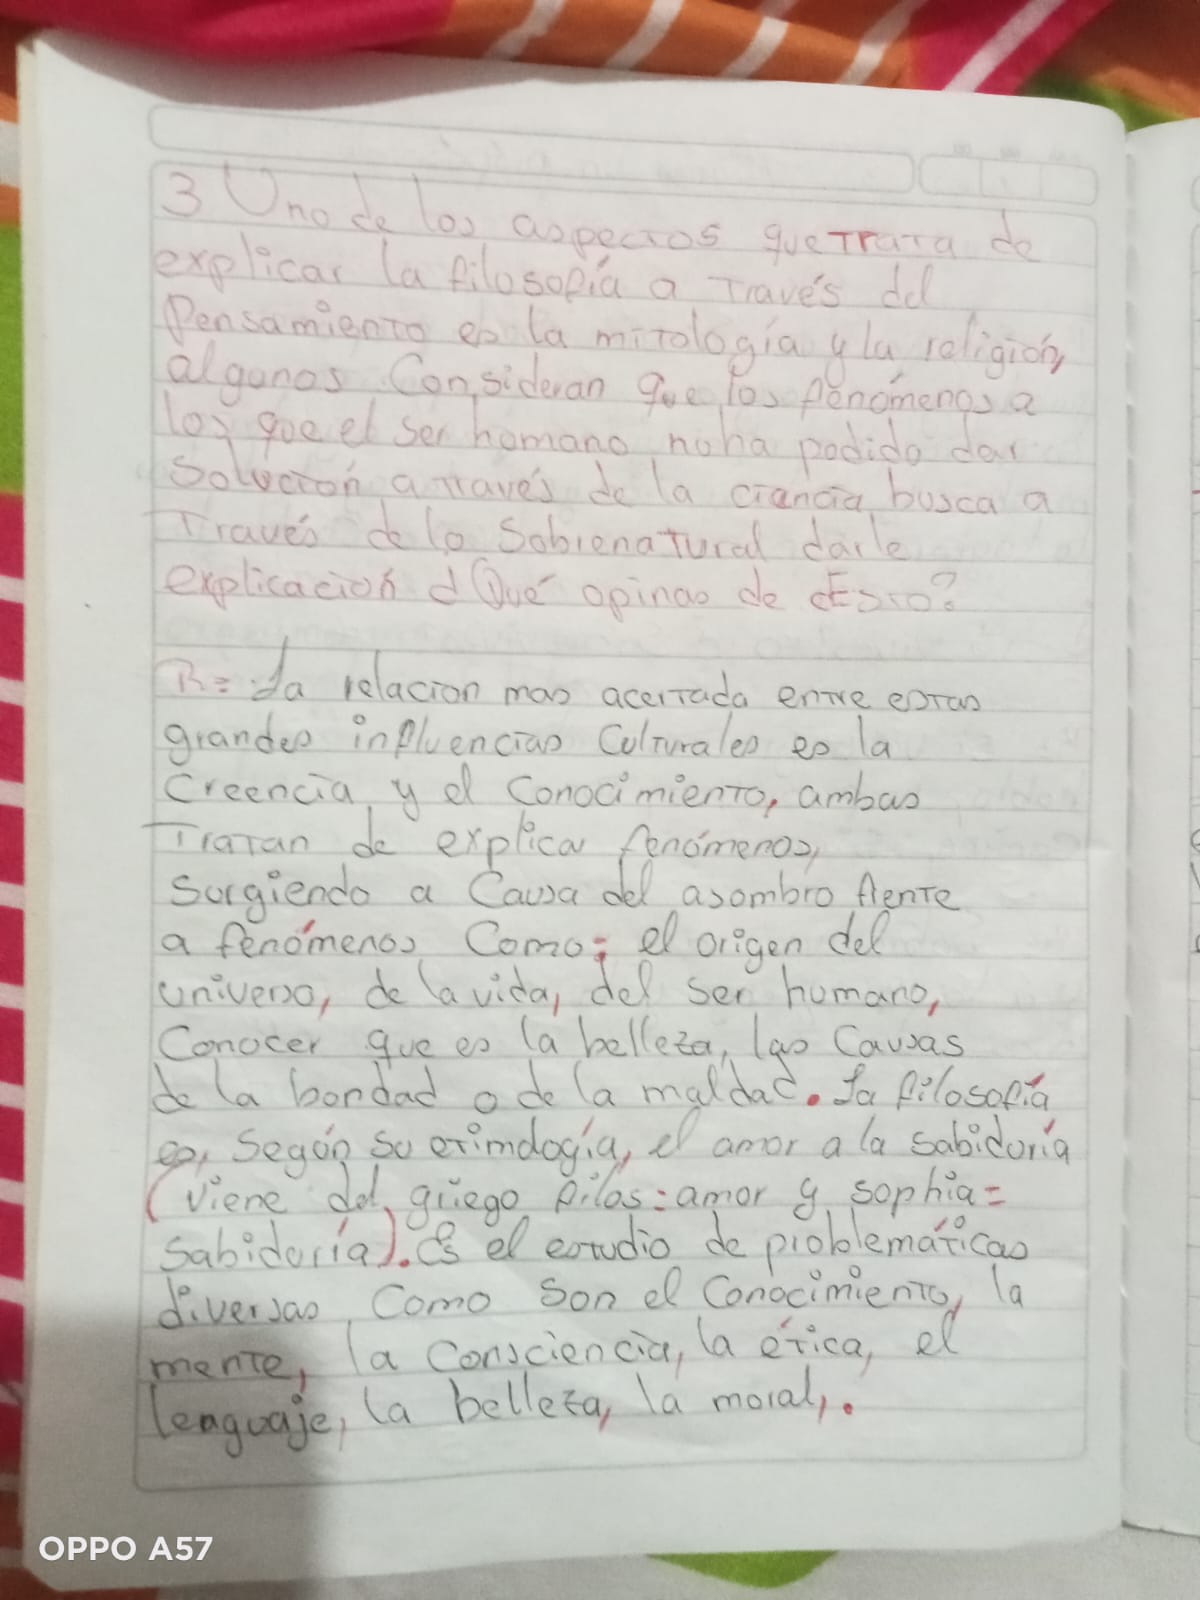 3 Uno de los aspectos que Trata de
explicar la filosofía a Través del
Pensamiento es la mitología y la religión,
algunos Consideran que los fenómenos a
los que el ser humano no ha podido dar
Solución a través de la ciencia busca a
Través de lo Sobrenatural darle
explicación ¿Qué opinas de Esto?
R= La relacion mas acertada entre estas
grandes influencias Culturales es la
Creencia y el Conocimiento, ambas
Tratan de explicar fenómenos,
Surgiendo a Causa del asombro frente
a fenómenos Como; el origen del
universo, de la vida, del ser humano,
Conocer que es la belleza, las Causas
de la bondad o de la maldad. La filosofía
es, Según su etimología, el amor a la sabiduría
(viene del griego filos: amor y sophia=
Sabiduría). Es el estudio de problemáticas
diversas Como son el Conocimiento, la
mente, la Consciencia, la ética, el
lenguaje, la belleza, la moral,.
OPPO A57